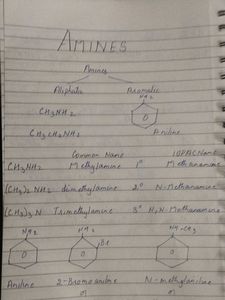 AMINES
Amines
Aliphatic Aromatic
NH2
CH3NH2
CH3CH2NH2 Aniline
Common Name IUPAC Name
CH3NH2 Methylamine 1° Methanamine
(CH3)2 NH2 dimethylamine 2° N-Methanamine
(CH3)3 N Trimethylamine 3° N,N Methanamine
NH2 NH2 NH-CH3
Br
Aniline 2-Bromoaniline N-methylaniline
or or